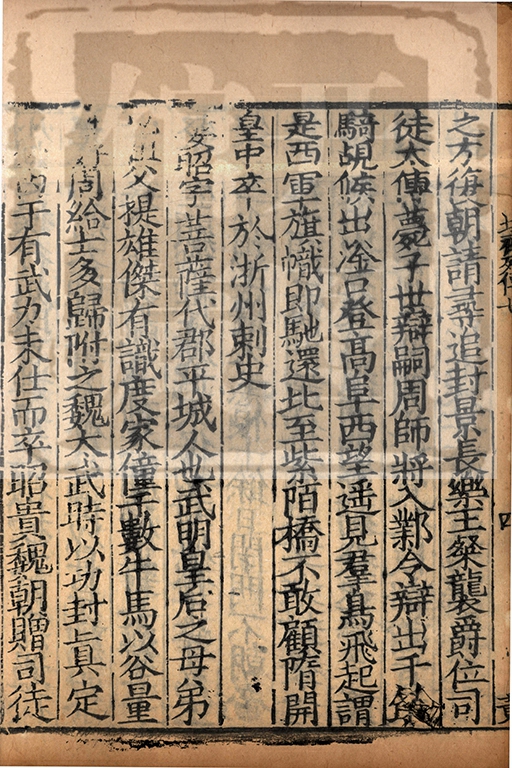 之方復朝請尋追封景長樂王粲襲爵位司
徒太傅薨子世辯嗣周師將入鄴令辯出千餘
騎覘候出滏口登髙阜西望遥見羣鳥飛起謂
是西軍旗幟即馳還比至紫陌橋不敢顧隋開
皇中卒於浙州刺史
婁昭字菩薩代郡平城人也武明皇后之母弟
祖父提雄傑有識度家僮千數牛馬以谷量
好周給士多歸附之魏太武時以功封真定
内干有武力未仕而卒昭貴魏朝贈司徒
四